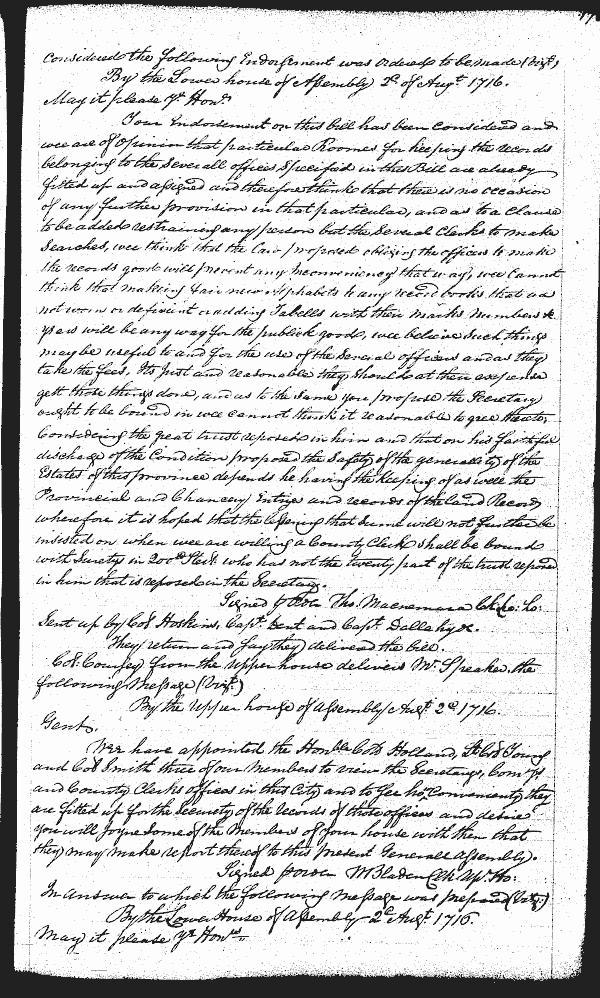 considered the following Endorsement was ordered to be made (Vizt)
By the Lower house of Assembly 2d of Augt 1716.
May it please yr Honrs
Your Endorsement on this bill has been Considered and
wee are of Opinion that particular Roomes for keeping the records
belonging to the severall offices Specified in this Bill are already
fitted up and assigned and therefore think that there is no occasion
of any further provision in that particular, and as to a Clause
to be added restraining any person but the Several Clerks to make
Searches, wee think that the Law proposed obliging the officers to make
the records good will prevent any inconveniency that way, wee Cannot
think that making fair new Alphabets to any record books that are
not worn or deficient or adding Tabells with their marks Numbers &
years will be any way for the publick good, wee believe such things
may be useful to and for the use of the several officers and as they
take the fees, Its Just and reasonable they should at their expense
gett those things done, and as to the same you propose the Secretary
ought to be bound in wee cannot think it reasonable to gree thereto
Considering the great trust reposed in him and that on his faithful
discharge of the Condition proposed the Safety of the generallity of the
Estates of this province depends he having the keeping of as well the
Provincial and Chancery Entrys and records of the Land Records
wherefore it is hoped that the lessening that sume will not further be
insisted on when wee are willing a County Clerk shall be bound
with Surety in 200 Sterl. who has not the twenty part of the trust reposed
in him that is reposed in the Secretary.
Signed p Order Tho. Macnemara Clk Lo: Ho:
Sent up by Col Hoskins, Capt. Dent and Capt. Dallahyde.
They return and say they delivered the bill.
Col. Coursey from the upper house delivers Mr. Speaker the
following Message (Vizt)
By the upper house of Assembly Augt 2d 1716.
Gents.
Wee have appointed the Honble Colo Holland, Lt Col Young
and Col Smith three of our Members to view the Secretarys, Comrys
and County Clerks offices in this City and to See how Conveniently they
are fitted up for the Security of the records of those offices and desire
you will Joyne some of the Members of your house with them that
they may make report thereof to this present Generall Assembly.
Signed p order WBladen Clk Up. Ho:
In answer to which the following Message was prepared (Vizt)
By the Lower House of Assembly 2d Augt. 1716.
May it please yr Honrs.